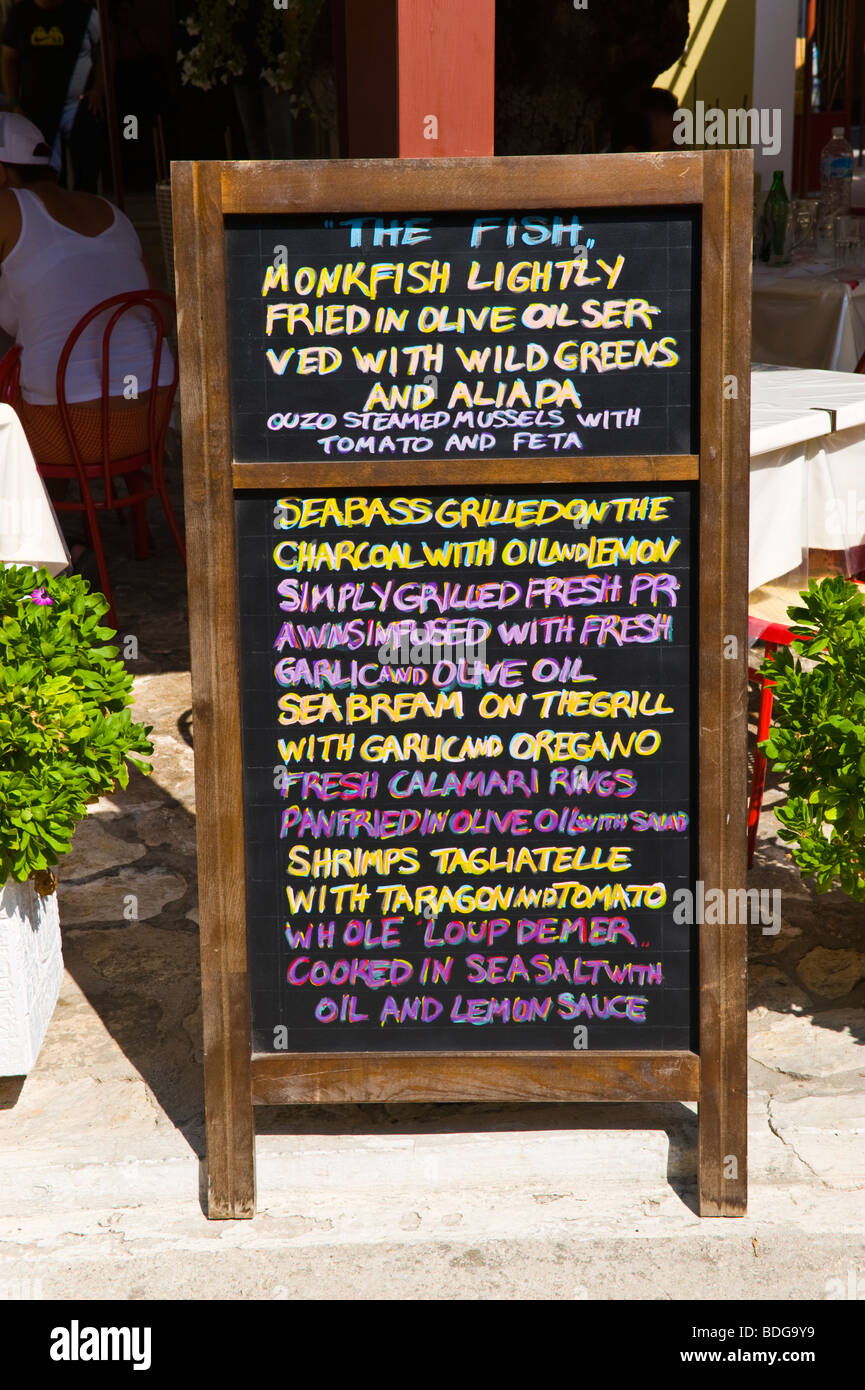 "THE FISH"
MONKFISH LIGHTLY
FRIED IN OLIVE OIL SER-
VED WITH WILD GREENS
AND ALIADA
OUZO STEAMED MUSSELS WITH
TOMATO AND FETA
SEABASS GRILLED ON THE
CHARCOAL WITH OIL AND LEMON
SIMPLY GRILLED FRESH PR
AWNS INFUSED WITH FRESH
GARLIC AND OLIVE OIL
SEA BREAM ON THE GRILL
WITH GARLIC AND OREGANO
FRESH CALAMARI RINGS
PANFRIED IN OLIVE OIL WITH SALAD
SHRIMPS TAGLIATELLE
WITH TARAGON AND TOMATO
WHOLE "LOUP DE MER"
COOKED IN SEA SALT WITH
OIL AND LEMON SAUCE
alamy
alamy
Image ID: BDG9Y9
www.alamy.com